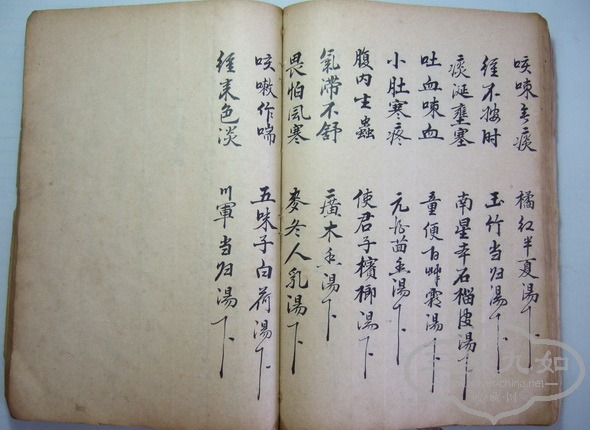 咳嗽 痰 橘红半夏湯下
经不按时 玉竹当归湯下
痰涎壅塞 南星 石榴皮湯下
吐血嗽血 童便百草霜湯下
小肚寒疼 元胡茴香湯下
腹内生蟲 使君子檳榔湯下
氣滞不舒 廣木香湯下
畏怕風寒 麥冬人乳湯下
咳嗽作喘 五味子白荷湯下
经来色淡 川軍当归湯下
九如